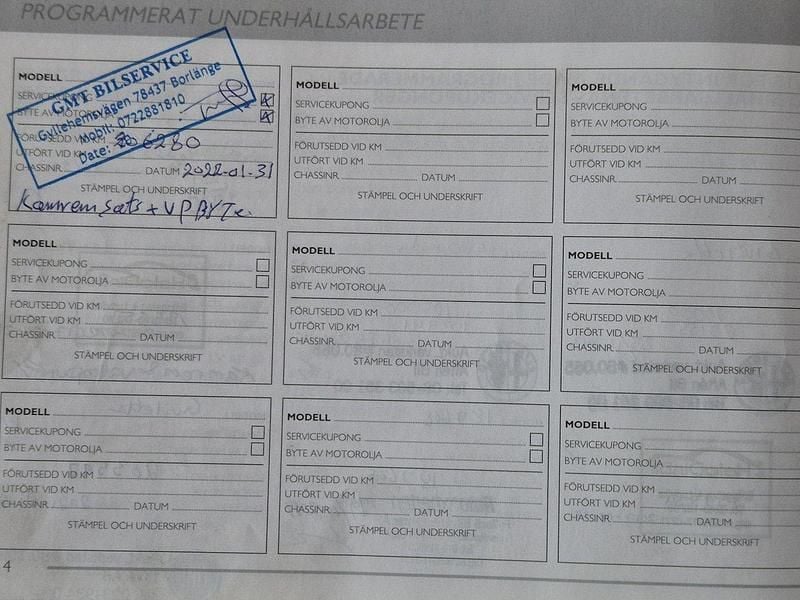 PROGRAMMERAT UNDERHÅLLSARBETE
MODELL
GMT BILSERVICE
Gyllehemsvägen 78437 Borlänge
Mobil: 0722881810
Date:
SERVICEKUPONG
BYTE AV MOTOROLJA
FÖRUTSEDD VID KM 206280
UTFÖRT VID KM
CHASSINR. DATUM 2022-01-31
STÄMPEL OCH UNDERSKRIFT
Kamremsats + VP BYTE.
MODELL
SERVICEKUPONG
BYTE AV MOTOROLJA
FÖRUTSEDD VID KM
UTFÖRT VID KM
CHASSINR. DATUM
STÄMPEL OCH UNDERSKRIFT
MODELL
SERVICEKUPONG
BYTE AV MOTOROLJA
FÖRUTSEDD VID KM
UTFÖRT VID KM
CHASSINR. DATUM
STÄMPEL OCH UNDERSKRIFT
MODELL
SERVICEKUPONG
BYTE AV MOTOROLJA
FÖRUTSEDD VID KM
UTFÖRT VID KM
CHASSINR. DATUM
STÄMPEL OCH UNDERSKRIFT
MODELL
SERVICEKUPONG
BYTE AV MOTOROLJA
FÖRUTSEDD VID KM
UTFÖRT VID KM
CHASSINR. DATUM
STÄMPEL OCH UNDERSKRIFT
MODELL
SERVICEKUPONG
BYTE AV MOTOROLJA
FÖRUTSEDD VID KM
UTFÖRT VID KM
CHASSINR. DATUM
STÄMPEL OCH UNDERSKRIFT
MODELL
SERVICEKUPONG
BYTE AV MOTOROLJA
FÖRUTSEDD VID KM
UTFÖRT VID KM
CHASSINR. DATUM
STÄMPEL OCH UNDERSKRIFT
MODELL
SERVICEKUPONG
BYTE AV MOTOROLJA
FÖRUTSEDD VID KM
UTFÖRT VID KM
CHASSINR. DATUM
STÄMPEL OCH UNDERSKRIFT
MODELL
SERVICEKUPONG
BYTE AV MOTOROLJA
FÖRUTSEDD VID KM
UTFÖRT VID KM
CHASSINR. DATUM
STÄMPEL OCH UNDERSKRIFT
4